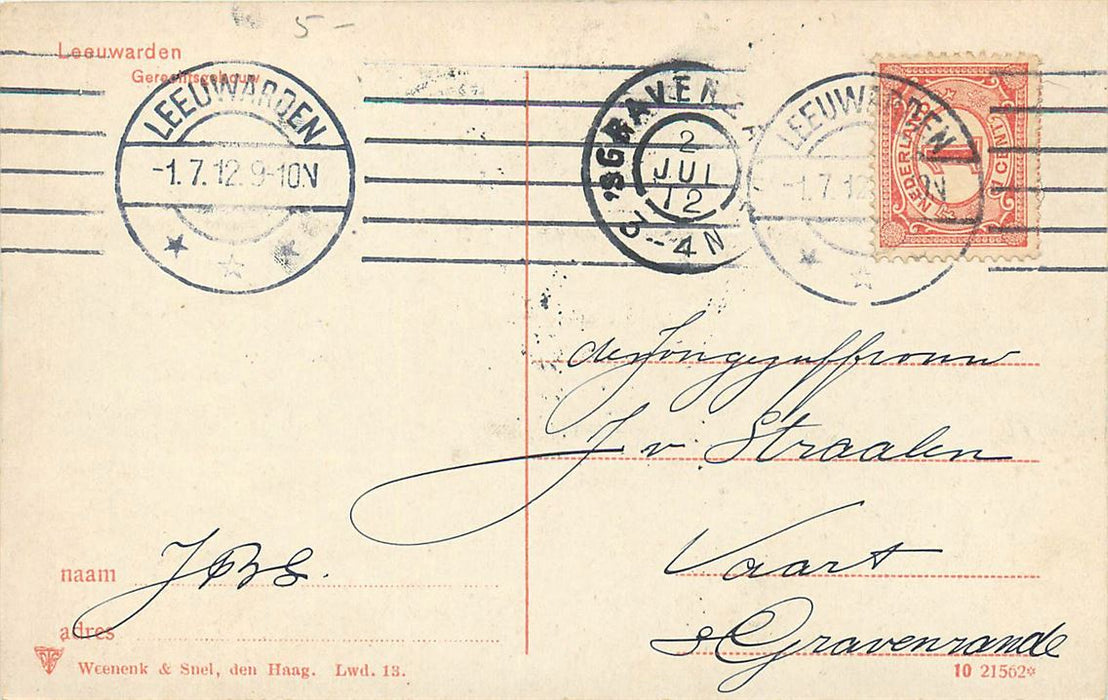 5-
Leeuwarden
Gerechtsgebouw
LEEUWARDEN
-1.7.12.9-10N
'SGRAVENZA
2
JUL
12
3-4N
LEEUWARDEN
-1.7.12 10N
NEDERLAND
1
1 CENT
de Jongejuffrouw
J v Straalen
Vaart
s Gravenzande
naam
JBS.
adres
Weenenk & Snel, den Haag. Lwd. 13.
10 21562*